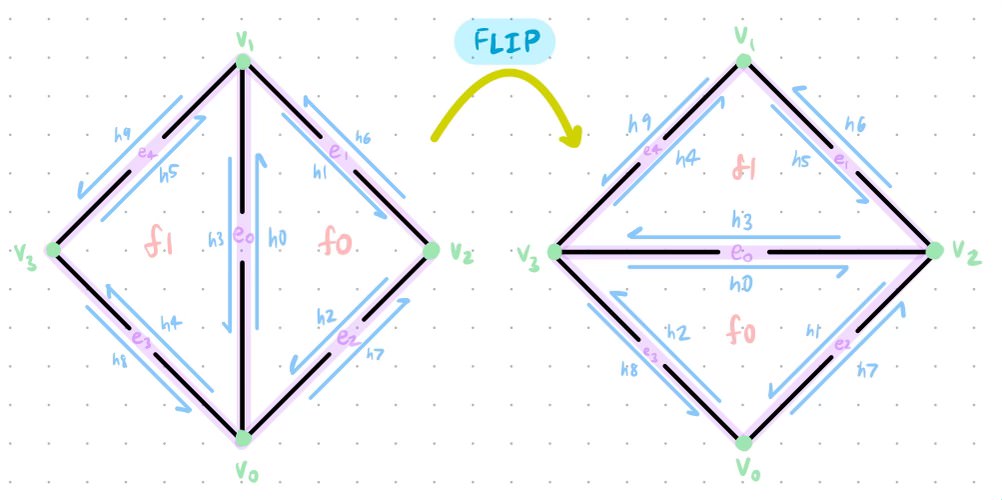 FLIP
V1
h9
e4
h5
h6
e1
h1
V3
f1
h3
e0
h0
f0
V2
h4
e3
h8
h2
e2
h7
V0
V1
h9
e4
h4
h6
e1
h5
f1
h3
V3
e0
V2
h0
f0
h2
e3
h8
h1
e2
h7
V0